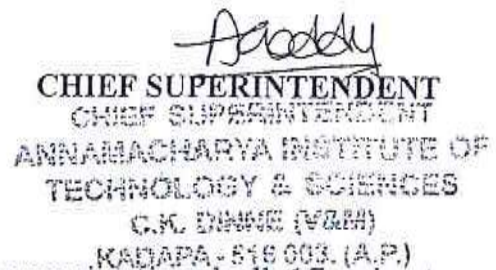 CHIEF SUPERINTENDENT
CHIEF SUPERINTENDENT
ANNAMACHARYA INSTITUTE OF
TECHNOLOGY & SCIENCES
C.K. DINNE (V&M)
KADAPA - 516 003. (A.P.)